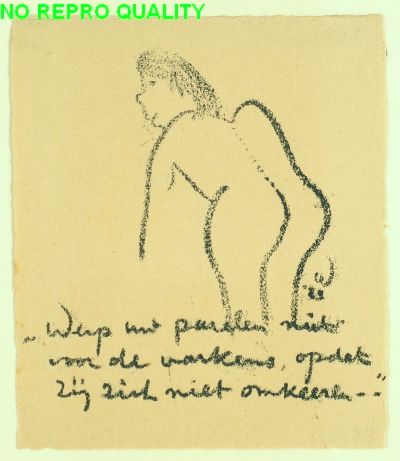 NO REPRO QUALITY
'22
„Werp uw parelen niet
voor de varkens, opdat
zij zich niet omkeeren--"